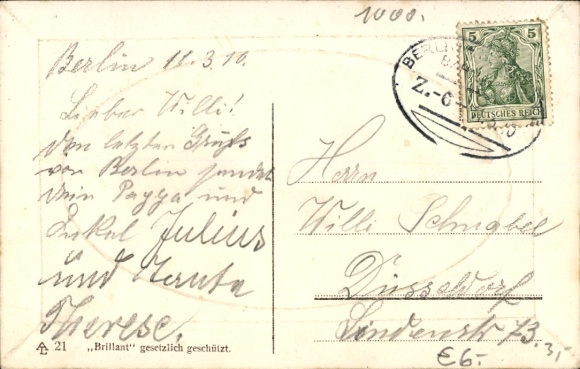 1000.
5 5
BERLIN
BA
Z.-C
DEUTSCHES REICH
Berlin 11.3.10.
Lieber Willi!
Den letzten Gruß
von Berlin sendet
Dein Pappa und
Onkel Julius
und Tante
Therese.
Herrn
Willi Schnabel
Düsseldorf
Lindenstr 73.
€6.- 3,-
AL 21 „Brillant" gesetzlich geschützt.